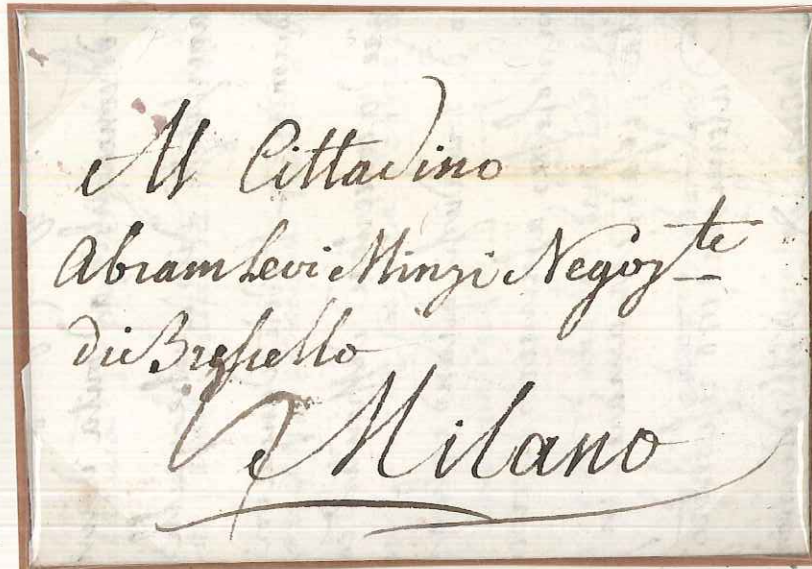 Al Cittadino
Abram Levi Minzi Negoz.te
di Bresello
Milano